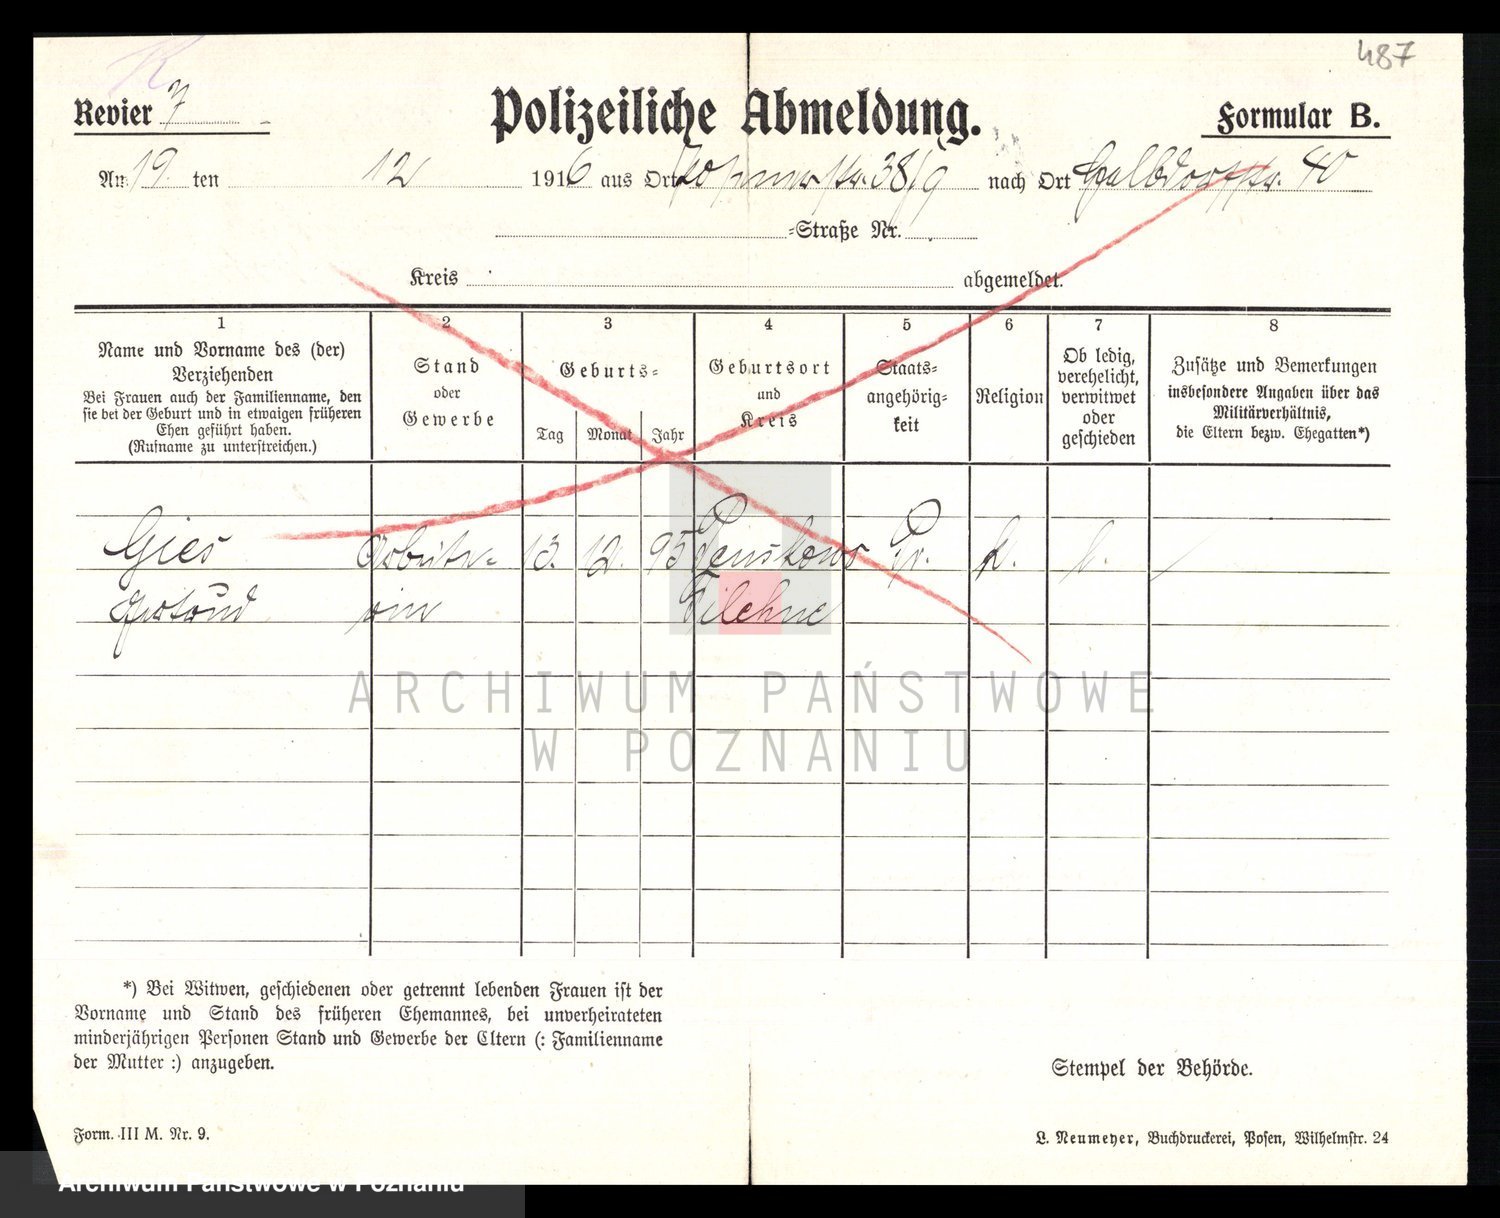 487
Revier 7
Polizeiliche Abmeldung.
Formular B.
Am 19. ten 12 1916 aus Ort 38/9 nach Ort 40
=Straße Nr.
Kreis abgemeldet.
1 2 3 4 5 6 7 8
Name und Vorname des (der)
Verziehenden
Bei Frauen auch der Familienname, den
sie bei der Geburt und in etwaigen früheren
Ehen geführt haben.
(Rufname zu unterstreichen.)
Stand
oder
Gewerbe
Geburts=
Tag Monat Jahr
Geburtsort
und
Kreis
Staats=
angehörig=
keit
Religion
Ob ledig,
verehelicht,
verwitwet
oder
geschieden
Zusätze und Bemerkungen
insbesondere Angaben über das
Militärverhältnis,
die Eltern bezw. Ehegatten*)
Gies Arbeite= 13. 12. 95 Pr. k. l.
rin Filehne
ARCHIWUM PAŃSTWOWE
W POZNANIU
*) Bei Witwen, geschiedenen oder getrennt lebenden Frauen ist der
Vorname und Stand des früheren Ehemannes, bei unverheirateten
minderjährigen Personen Stand und Gewerbe der Eltern (: Familienname
der Mutter :) anzugeben.
Stempel der Behörde.
Form. III M. Nr. 9.
L. Neumeyer, Buchdruckerei, Posen, Wilhelmstr. 24
Archiwum Państwowe w Poznaniu